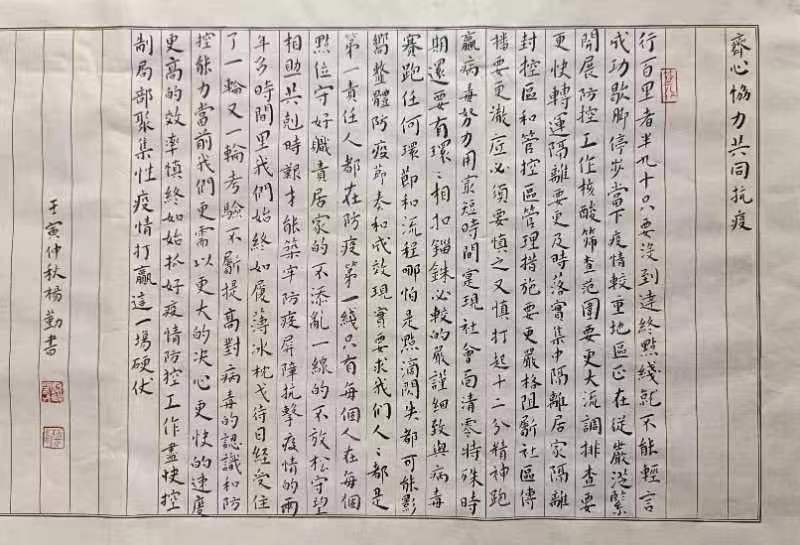 齊心協力共同抗疫
行百里者半九十只要沒到達終點綫就不能輕言
成功歇脚停步當下疫情較重地區正在從嚴從緊
開展防控工作核酸篩查范圍要更大流調排查要
更快轉運隔離要更及時落實集中隔離居家隔離
封控區和管控區管理措施要更嚴格阻斷社區傳
播要更澈底必須要慎之又慎打起十二分精神跑
贏病毒努力用最短時間實現社會面清零特殊時
期還要有環〻相扣錙銖必較的嚴謹細致與病毒
賽跑任何環節和流程哪怕是點滴閃失都可能影
響整體防疫節奏和成效現實要求我們人〻都是
第一責任人都在防疫第一綫只有每個人在每個
點位守好職責居家的不添亂一線的不放松守望
相助共剋時艱才能築牢防疫屏障抗擊疫情的兩
年多時間里我們始終如履薄冰枕戈待旦經受住
了一輪又一輪考驗不斷提高對病毒的認識和防
控能力當前我們更需以更大的决心更快的速度
更高的效率慎終如始抓好疫情防控工作盡快控
制局部聚集性疫情打贏這一場硬仗
壬寅仲秋楊勤書